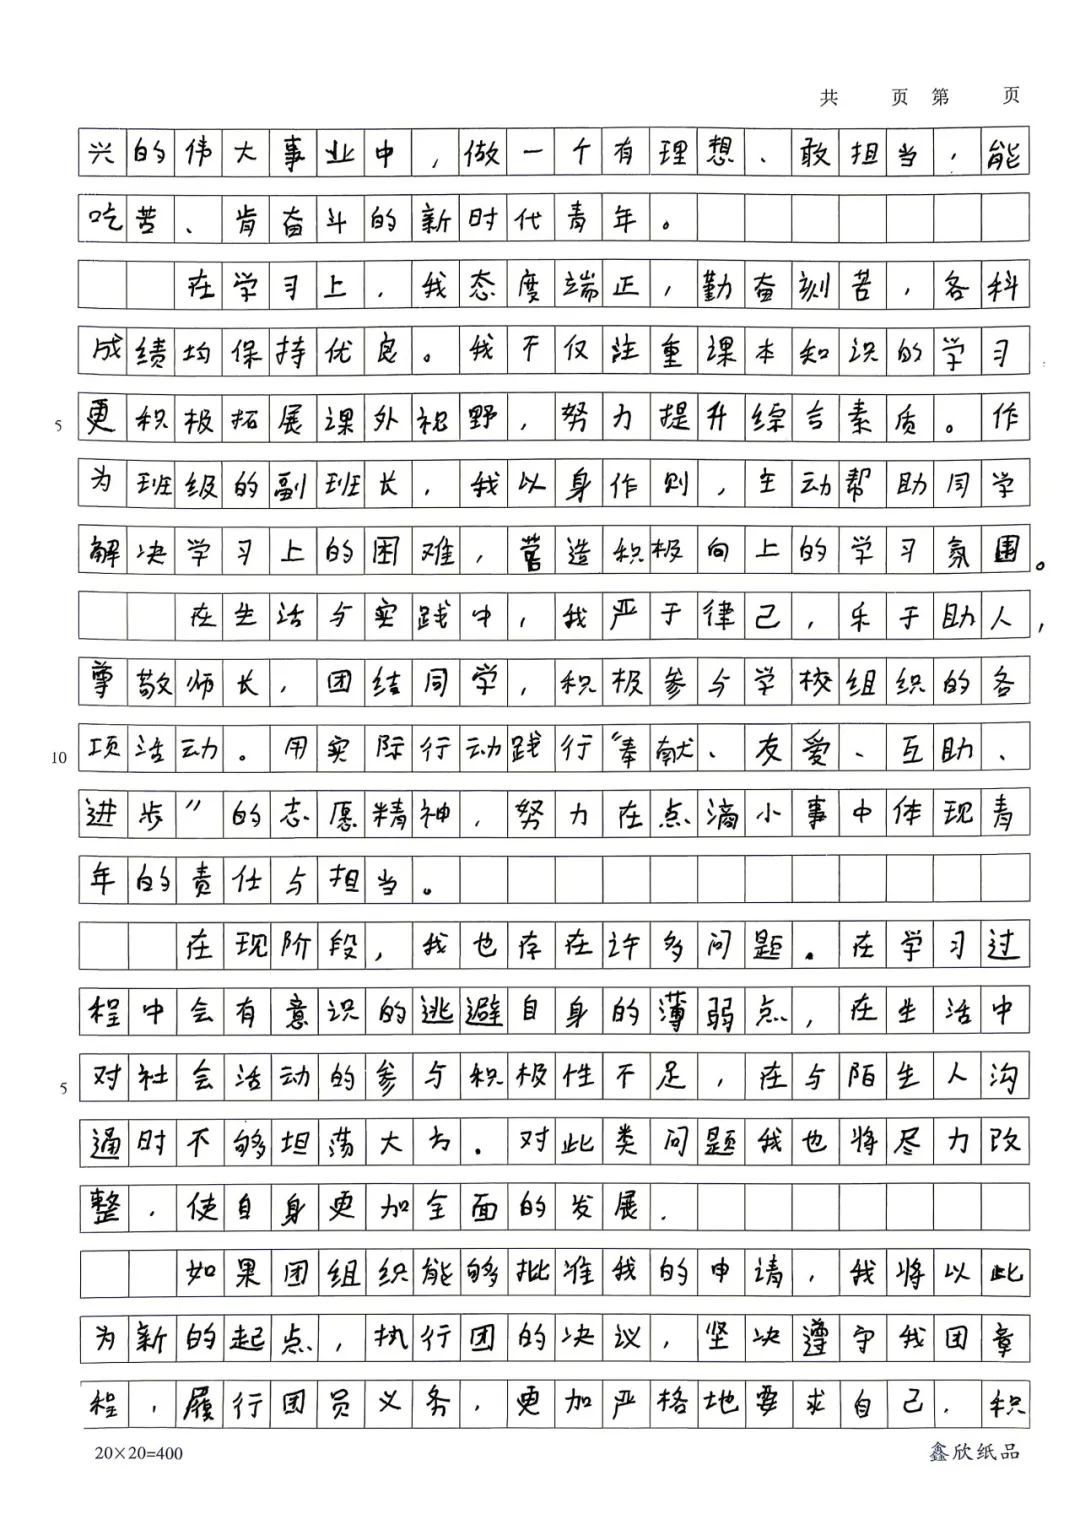 共 页 第 页
兴的伟大事业中，做一个有理想、敢担当，能
吃苦、肯奋斗的新时代青年。
在学习上，我态度端正，勤奋刻苦，各科
成绩均保持优良。我不仅注重课本知识的学习
5 更积极拓展课外视野，努力提升综合素质。作
为班级的副班长，我以身作则，主动帮助同学
解决学习上的困难，营造积极向上的学习氛围。
在生活与实践中，我严于律己，乐于助人，
尊敬师长，团结同学，积极参与学校组织的各
10 项活动。用实际行动践行“奉献、友爱、互助、
进步”的志愿精神，努力在点滴小事中体现青
年的责任与担当。
在现阶段，我也存在许多问题。在学习过
程中会有意识的逃避自身的薄弱点，在生活中
5 对社会活动的参与积极性不足，在与陌生人沟
通时不够坦荡大方。对此类问题我也将尽力改
整，使自身更加全面的发展.
如果团组织能够批准我的申请，我将以此
为新的起点，执行团的决议，坚决遵守我团章
程，履行团员义务，更加严格地要求自己，积
20×20=400 鑫欣纸品